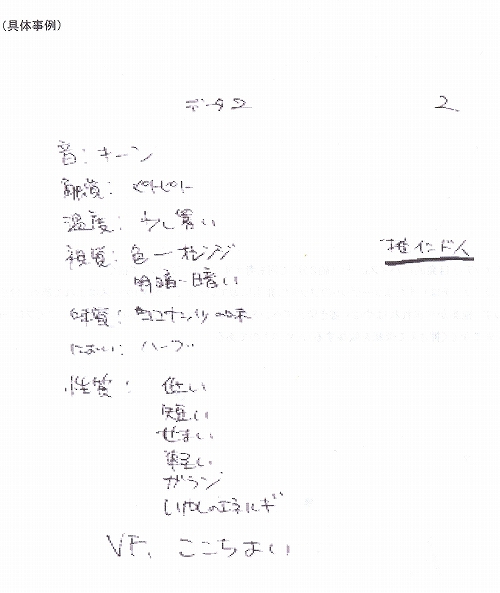 （具体事例）
データ2 2
音：キーン
触質：ベトベト
温度：少し暑い
視質：色ーオレンジ
明暗ー暗い
味質：ココナッツの味
におい：ハーブ
性質：低い
短い
せまい
軽い
ガラン
いやしのエネルギ
VF、ここちよい
インド人